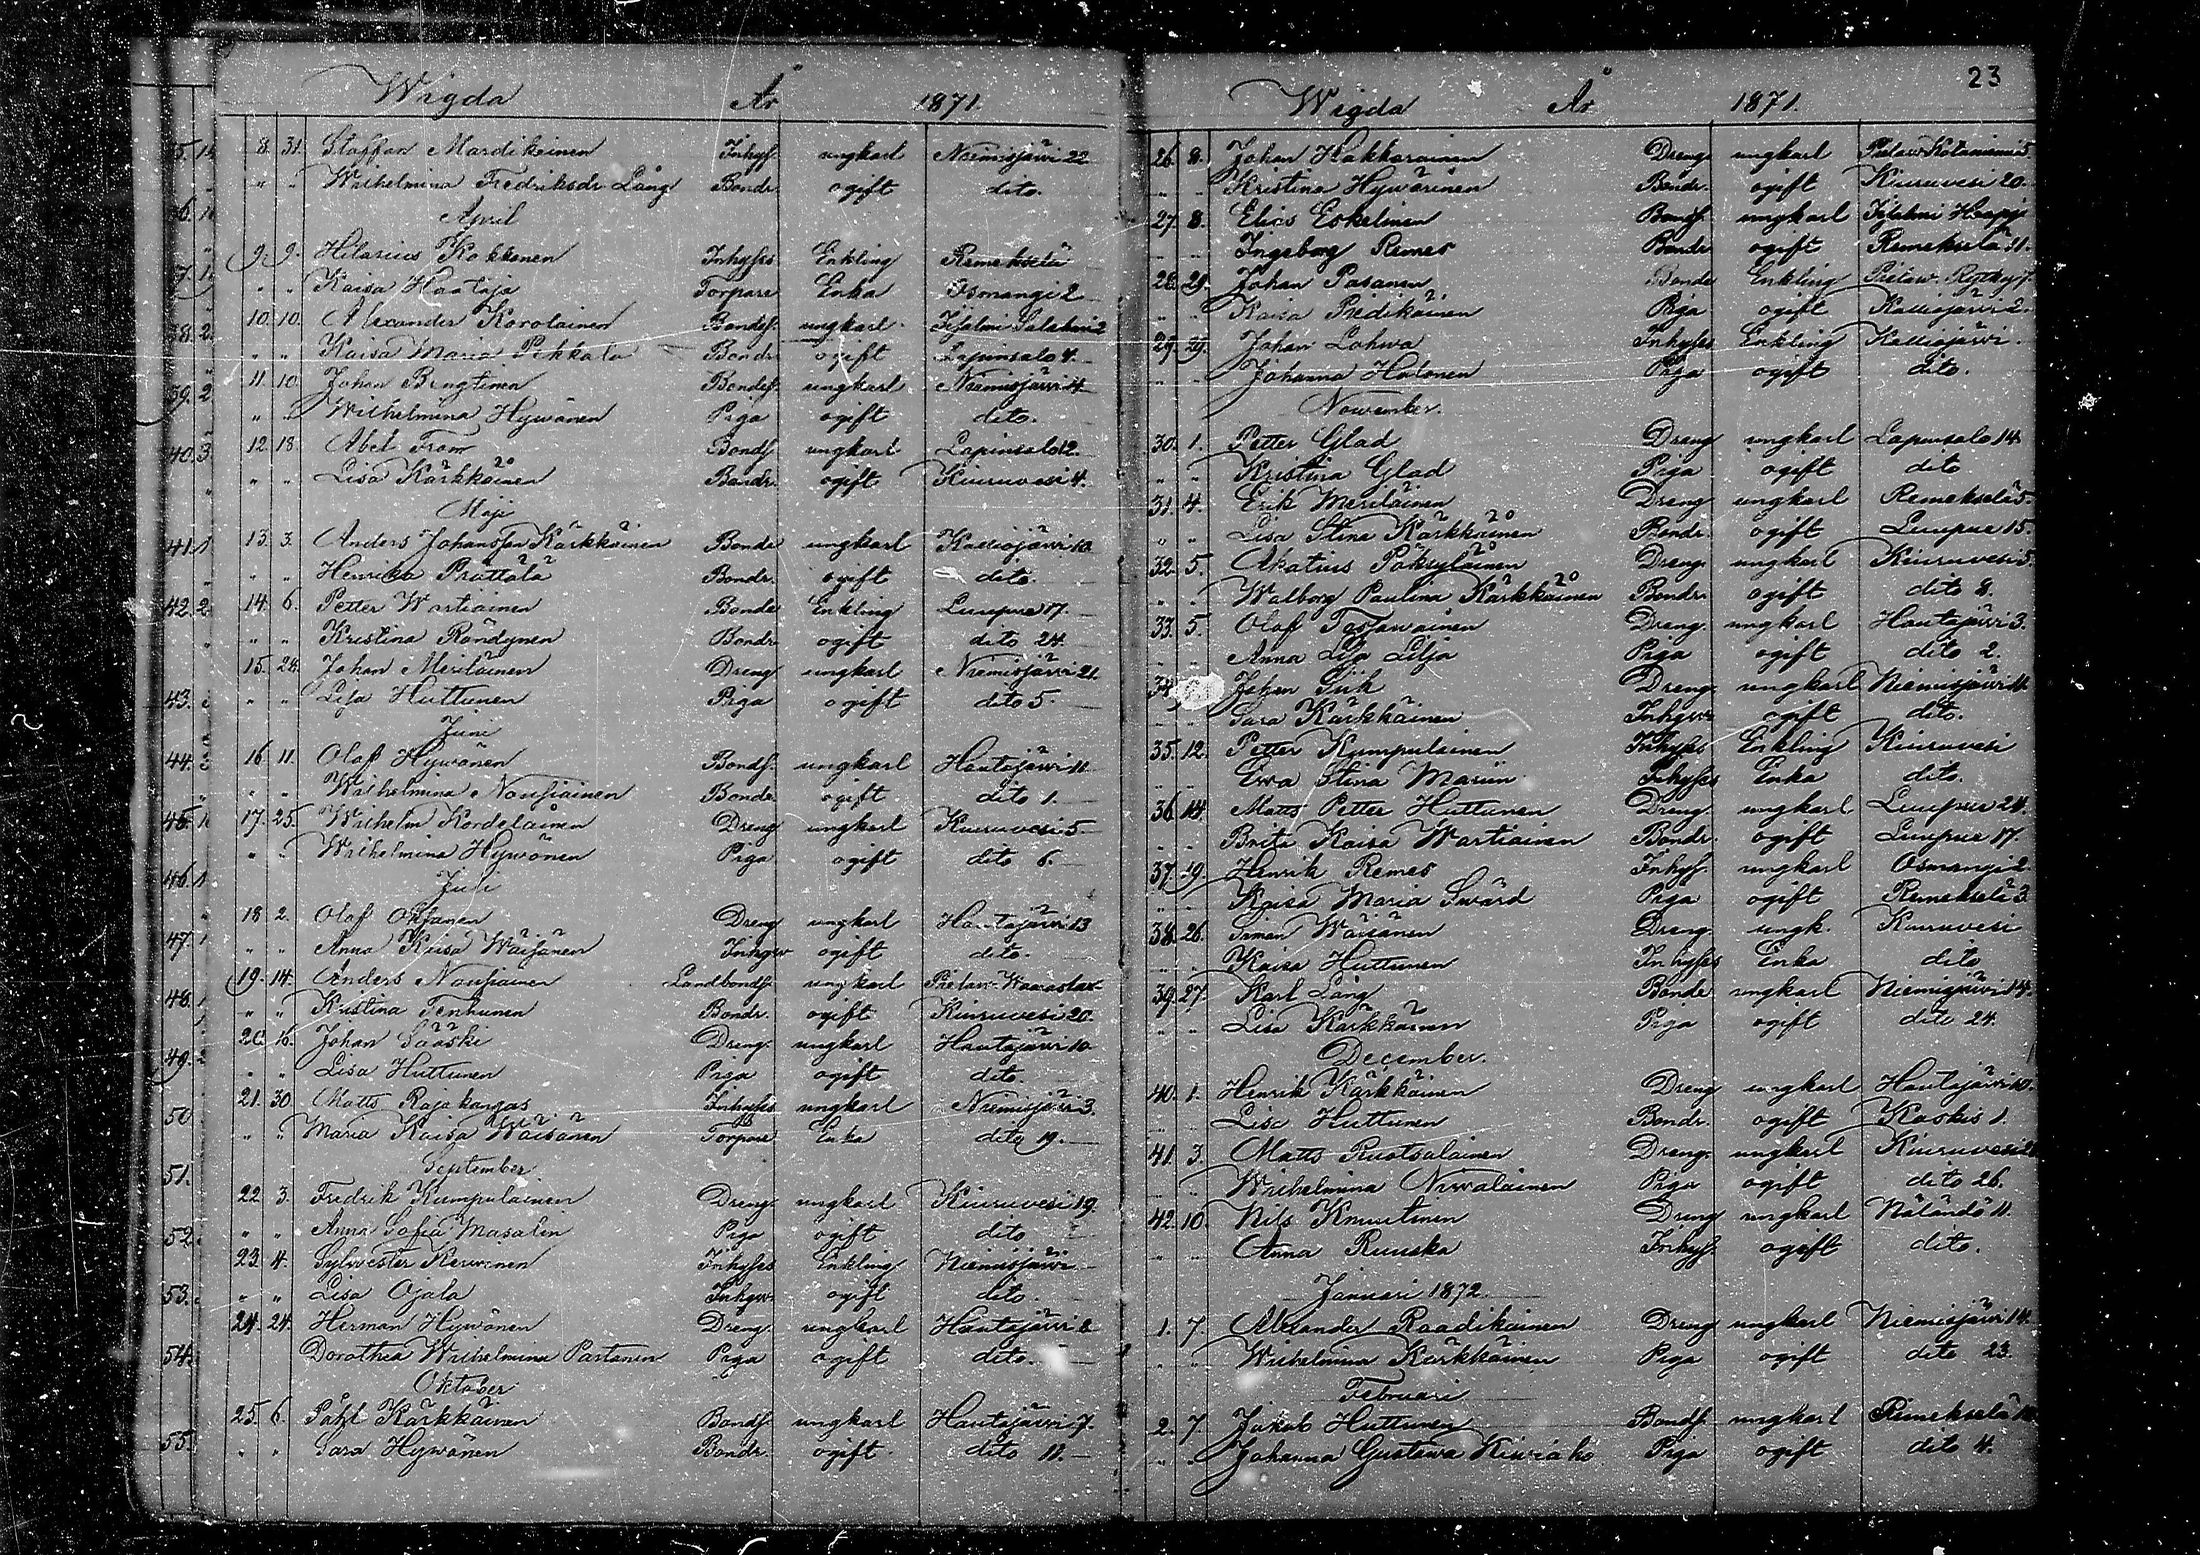 Wigda År 1871.
8. 31. Staffan Mardikainen Inhys. ungkarl Niemisjärvi 22
" " Wilhelmina Fredriksdr Lång Bondr. ogift dito.
April
9. 9. Hilarius Kokkonen Inhyses Enkling Remekselä
" " Kaisa Haataja Torpare Enka Osmangi 2
10. 10. Alexander Korolainen Bondes. ungkarl Idensalmi Salahmi 2
" " Kaisa Maria Pekkala Bondr. ogift Lapinsalo 4.
11. 10. Johan Bengtinen Bondes. ungkarl Niemisjärwi 4
" " Wilhelmina Hywönen Piga ogift dito.
12. 18. Abel From Bondf. ungkarl Lapinsalo 12.
" " Lisa Kärkkäinen Bondr. ogift Kiuruvesi 4.
Maji
13. 3. Anders Johansson Kärkkäinen Bonde ungkarl Kalliojärwi 10
" " Henrika Prättälä Bondr. ogift dito.
14. 6. Petter Wartiainen Bonde Enkling Luupue 17.
" " Kristina Röndynen Bondr. ogift dito 24.
15. 24. Johan Meriläinen Dreng ungkarl Niemisjärwi 21.
" " Lisa Huttunen Piga ogift dito 5.
Juni
16. 11. Olof Hywönen Bondf. ungkarl Hautajärwi 11
" " Wilhelmina Nousiainen Bondr. ogift dito 1.
17. 25. Wilhelm Kordelainen Dreng ungkarl Kiuruvesi 5.
" " Wilhelmina Hywönen Piga ogift dito 6.
Juli
18. 2. Olof Oksanen Dreng ungkarl Hautajärwi 13
" " Anna Kaisa Wäisänen Inhyses ogift dito.
19. 14. Anders Nousiainen Landbondf. ungkarl Pielaw. Waaraslax
" " Kristina Tenhunen Bondr. ogift Kiuruvesi 20.
20. 16. Johan Sääski Dreng. ungkarl Hautajärwi 10
" " Lisa Huttunen Piga ogift dito.
21. 30 Matts Rajakangas Inhyses ungkarl Niemisjärwi 3.
" " Maria Kaisa Wäisänen Torpare Enka dito 19.
September
22 3. Fredrik Kumpulainen Dreng ungkarl Kiuruvesi 19.
" " Anna Sofia Masalin Piga ogift dito
23. 4. Sylvester Kervinen Inhyses Enkling Niemisjärwi
" " Lisa Ojala Inhyses ogift dito.
24. 24. Herman Hywönen Dreng. ungkarl Hautajärwi 8
Dorothea Wilhelmina Partanen Piga ogift dito.
Oktober
25. 6. Påhl Kärkkäinen Bondf. ungkarl Hautajärwi 7.
" " Sara Hywönen Bondr. ogift dito 11.
23
Wigda År 1871.
26. 8. Johan Hakkarainen Dreng ungkarl Pielaw. Kotaniemi 5.
" " Kristina Hywärinen Bondr. ogift Kiuruvesi 20.
27. 8. Elias Eskelinen Bondf. ungkarl
" " Ingeborg Remes Bondr. ogift Remekselä 11.
28. 29. Johan Pasanen Bonde Enkling Pielaw.
" " Kaisa Predikäinen Piga ogift Kalliojärwi 2.
29. 29. Johan Lohwa Inhyses Enkling Kalliojärwi.
" " Johanna Halonen Piga ogift dito.
Nowember.
30. 1. Petter Glad Dreng ungkarl Lapinsalo 14
" " Kristina Glad Piga ogift dito
31. 4. Erik Meriläinen Dreng ungkarl Remekselä 5.
" " Lisa Stina Kärkkäinen Bondr. ogift Luupue 15.
32. 5. Akatius Pöksyläinen Dreng. ungkarl Kiuruvesi 5.
" " Walborg Paulina Kärkkäinen Bondr. ogift dito 8.
33. 5. Olof Tossawainen Dreng. ungkarl Hautajärwi 3.
" " Anna Lisa Lilja Piga ogift dito 2.
34. Johan Siik Dreng. ungkarl Niemisjärwi 4
Sara Kärkkäinen Inhyses ogift dito.
35. 12. Petter Kumpulainen Inhyses Enkling Kiuruvesi
" " Ewa Stina Mariin Inhyses Enka dito.
36. 14. Matts Petter Huttunen Dreng. ungkarl Luupue 24.
" " Brita Kaisa Wartiainen Bondr. ogift Luupue 17.
37. 19. Henrik Remes Inhys. ungkarl Osmangi 2.
" " Kaisa Maria Swärd Piga ogift Remekselä 3
38. 26. Simon Wäisänen Dreng. ungk. Kiuruvesi
" " Kaisa Huttunen Inhyses Enka dito
39. 27. Karl Lång Bonde ungkarl Niemisjärwi 14.
" " Lisa Kärkkäinen Piga ogift dito 24.
December.
40. 1. Henrik Kärkkäinen Dreng ungkarl Hautajärwi 10.
Lisa Huttunen Bondr. ogift Koskis 1.
41. 3. Matts Ruotsalainen Dreng. ungkarl Kiuruvesi
" " Wilhelmina Niwalainen Piga ogift dito 26.
42. 10. Nils Knuutinen Dreng ungkarl Näländö 11.
" " Anna Ruuska Inhys. ogift dito.
Januari 1872
1. 7. Alexander Raadikainen Dreng ungkarl Niemisjärwi 14.
" " Wilhelmina Kärkkäinen Piga ogift dito 23.
Februari
2. 7. Jakob Huttunen Bondf. ungkarl Remekselä
" " Johanna Gustawa Kiwiaho Piga ogift dito 4.